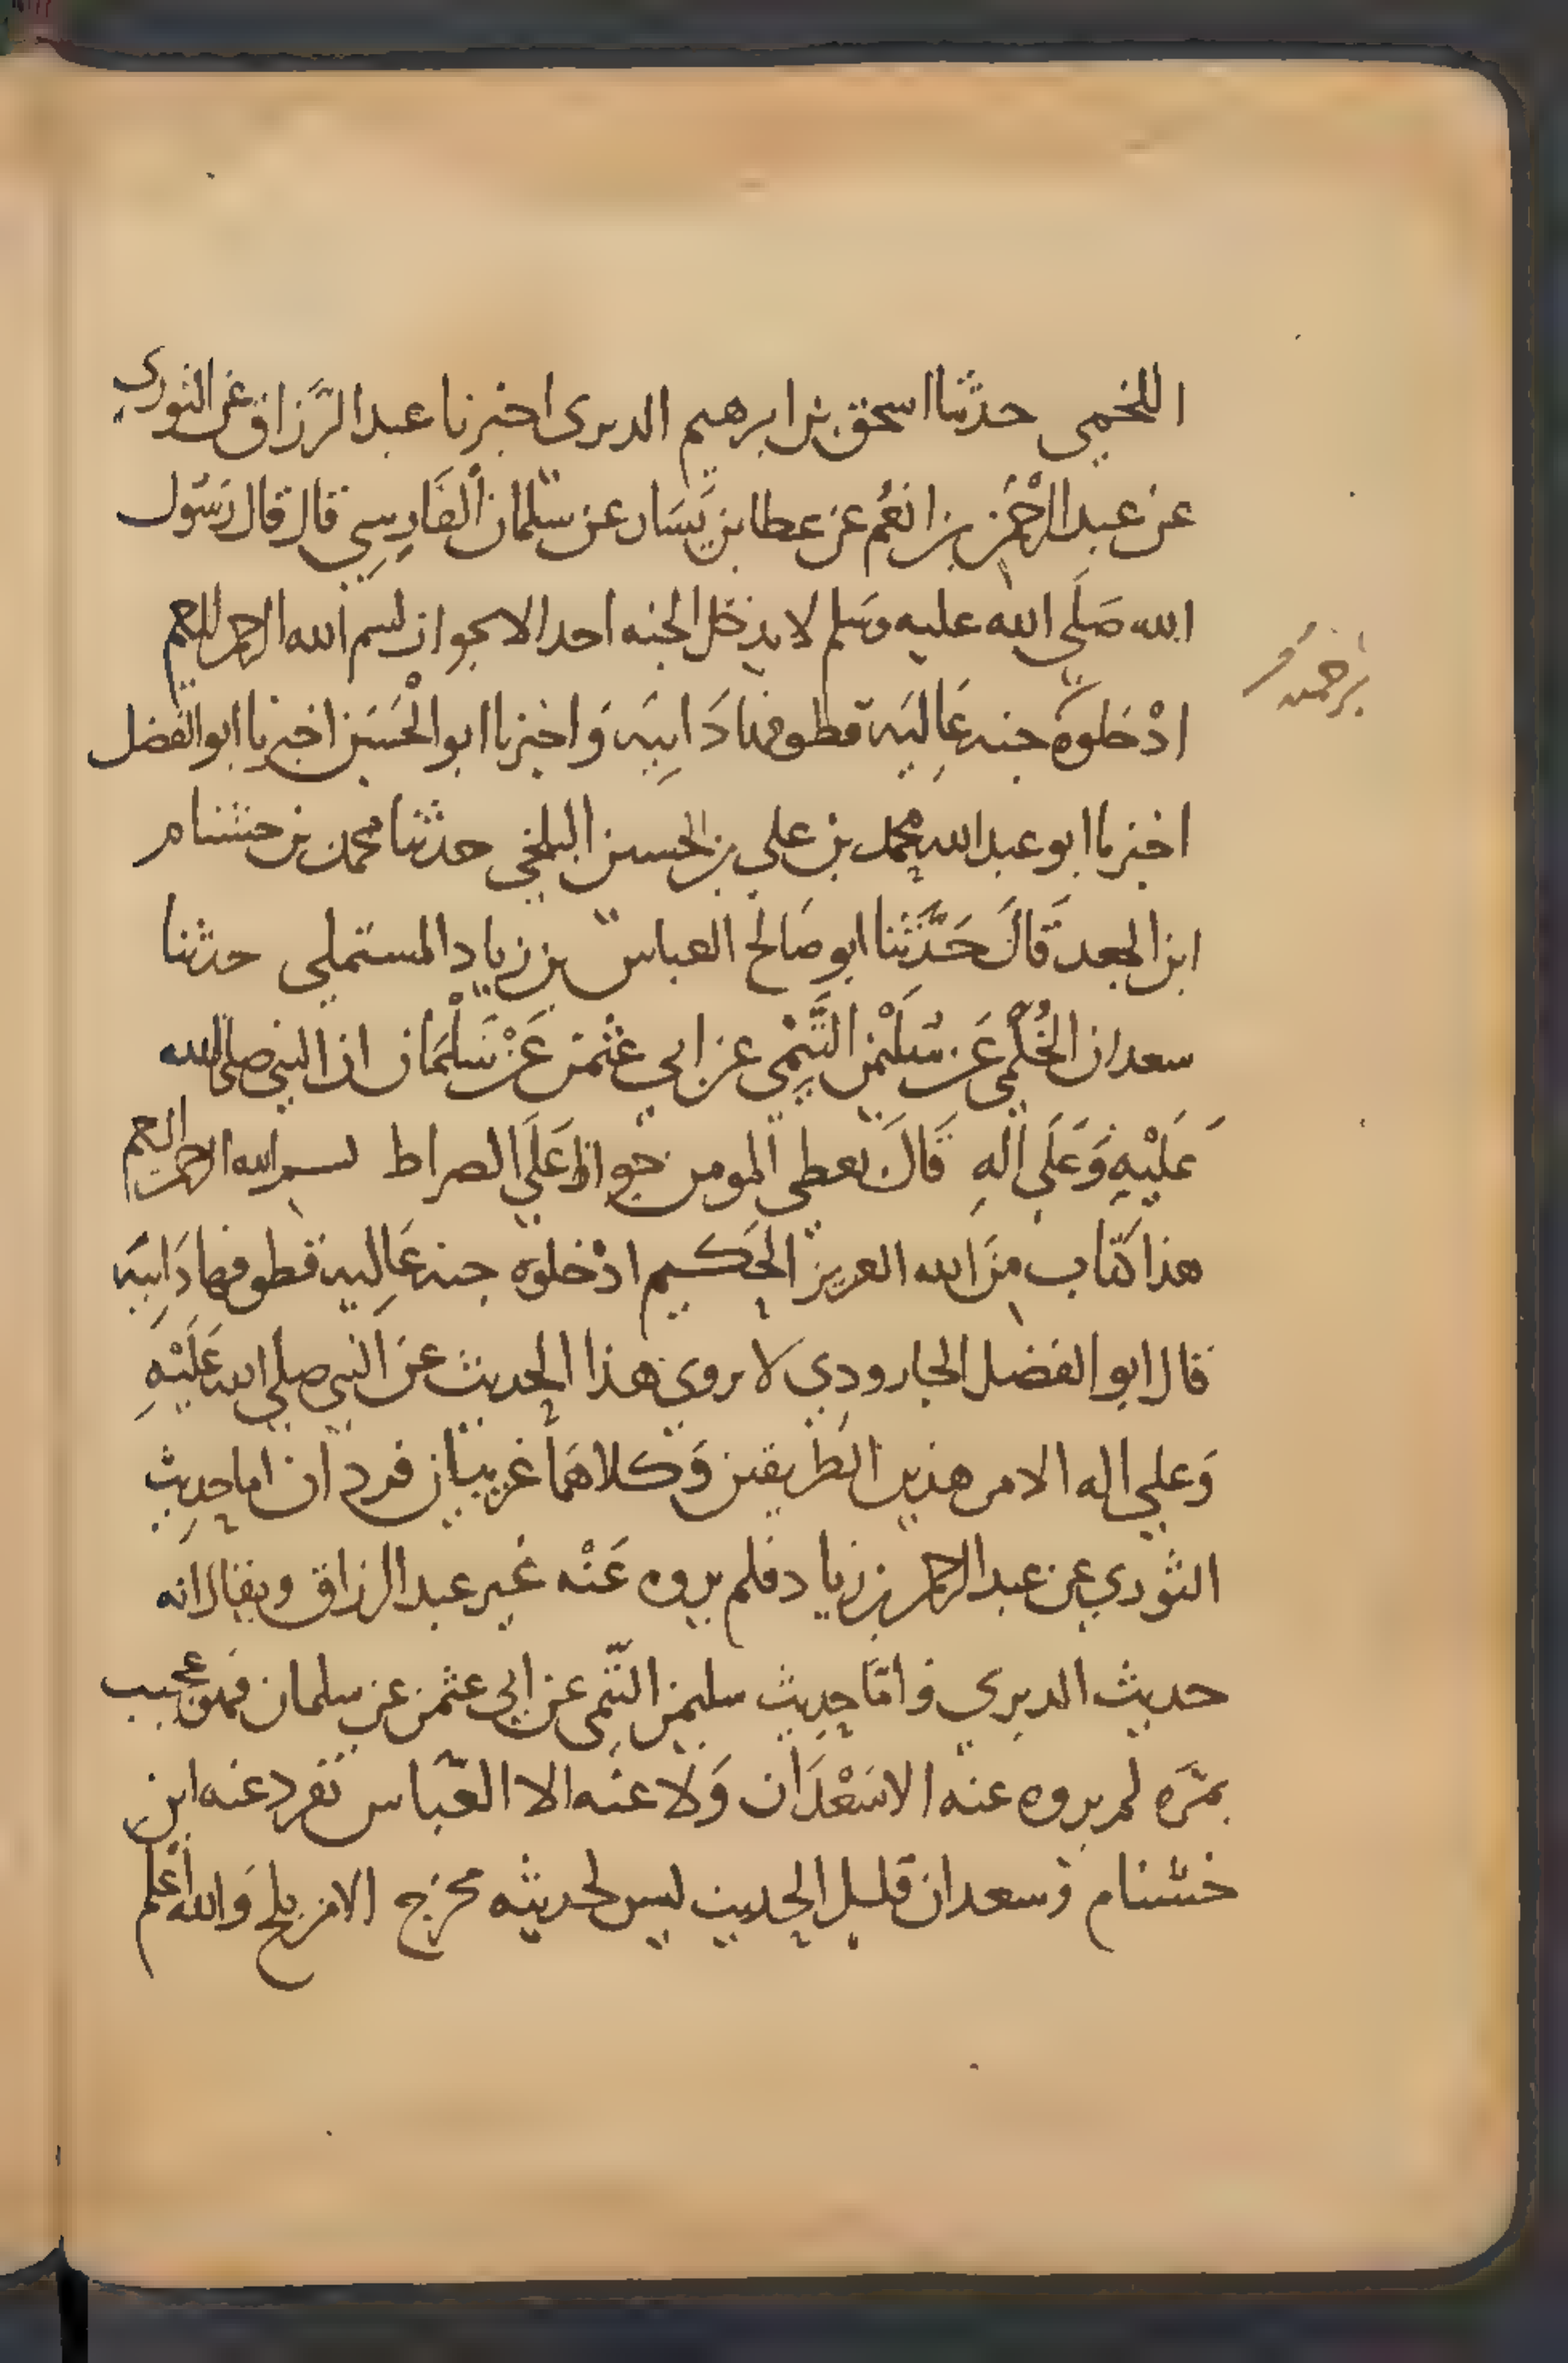 اللخمي حدثنا اسحق بن ابرهيم الدبرى اخبرنا عبد الرَّزاق عن الثوري
عن عبد الرحمن بن انعُم عن عطا بن يَسَار عن سلمان الفَارِسِي قال قال رَسُول
الله صَلَى الله عليه وسَلم لا يدخل الجنه احد الا بجواز بسم الله الرحمن الرحيم
ادْخلوه جنه عَاليَه قطوفها دَانِيَه وَاخبرنا ابو الحْسَين اخبرنا ابو الفضل
اخبرنا ابو عبد الله محمد بن علي بن الحسين البلخي حدثنا محمد بن خشنام
ابن الجعد قَالَ حَدَّثنا ابو صَالح العباس بن زياد المستملي حدثنا
سعدان الخُلْمي عَن سُلَيْمن التَّيْمي عن ابي عثمن عَنْ سَلْمَان ان النبي صلى الله
عَلَيْهِ وَعَلَى الهِ قَالَ يعطى المومن جوازا عَلَى الصراط بسم الله الرحمن الرحيم
هذا كتاب مِنَ الله العزيز الحَكيم ادْخلوه جنه عَاليه قطوفها دَانيَه
قال ابو الفضل الجارودي لا يروى هذا الحديث عن النبي صلى الله عَلَيْهِ
وَعلي اله الا من هذين الطريقين وَكلاهمَا غريبان فردان اما حديث
الثوري عن عبد الرحمن بن زياد فلم يروه عَنْه غير عبد الرزاق ويقال انه
حديث الدبري وَامَّا حديث سليمن التيمي عن ابي عثمن عن سلمان فهو عجيب
بمَرَّه لم يروه عنه الا سَعْدَان وَلا عنه الا العَبَّاس تفرد عنه ابن
خشنام وَسعدان قليل الحديث ليس لحديثه مخرَج الا من بلخ وَالله اعلم